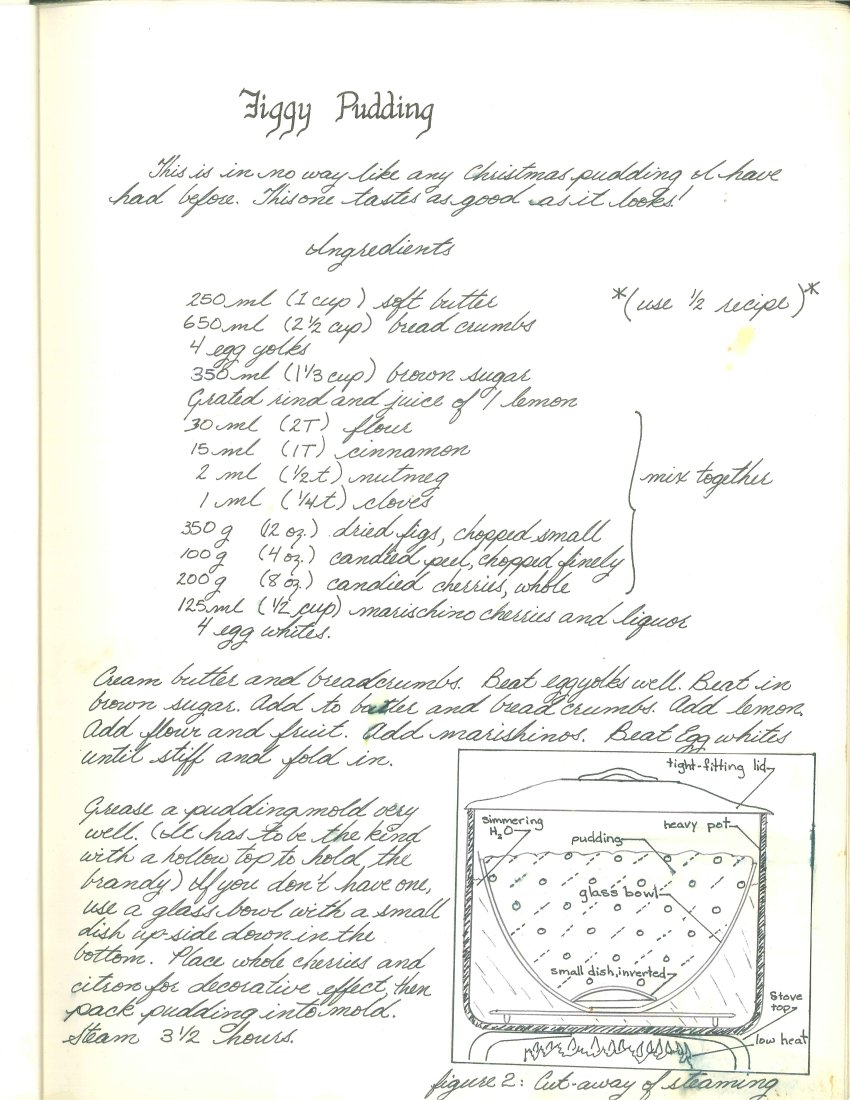 Figgy Pudding
This is in no way like any Christmas pudding I have
had before. This one tastes as good as it looks!
Ingredients
250 ml (1 cup) soft butter
*(use 1/2 recipe)*
650 ml (2 1/2 cup) bread crumbs
4 egg yolks
350 ml (1 1/3 cup) brown sugar
Grated rind and juice of 1 lemon
30 ml (2T) flour
15 ml (1T) cinnamon
2 ml (1/2 t) nutmeg
mix together
1 ml (1/4 t) cloves
350 g (12 oz.) dried figs, chopped small
100 g (4 oz.) candied peel, chopped finely
200 g (8 oz.) candied cherries, whole
125 ml (1/2 cup) marischino cherries and liquor
4 egg whites.
Cream butter and breadcrumbs. Beat egg yolks well. Beat in
brown sugar. Add to butter and bread crumbs. Add lemon.
Add flour and fruit. Add marishinos. Beat Egg whites
until stiff and fold in.
Grease a pudding mold very
well. (It has to be the kind
with a hollow top to hold the
brandy) If you don't have one,
use a glass bowl with a small
dish up-side down in the
bottom. Place whole cherries and
citron for decorative effect, then
pack pudding into mold.
Steam 3 1/2 hours.
tight-fitting lid
simmering
H2O
heavy pot
pudding
glass bowl
small dish, inverted
Stove
top
low heat
figure 2: Cut-away of steaming